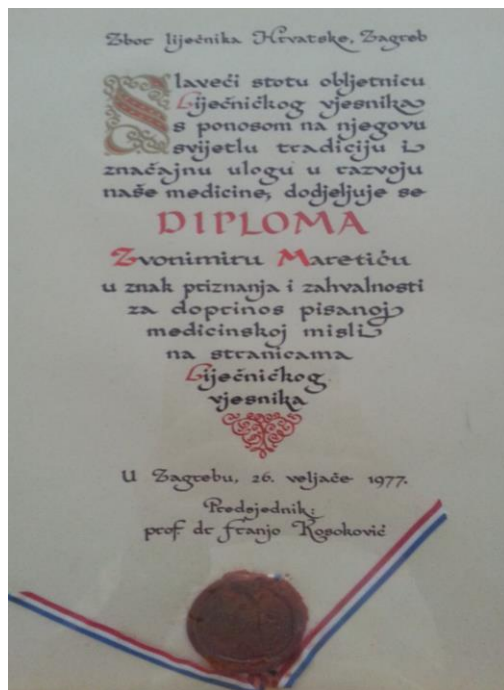 Zbor liječnika Hrvatske, Zagreb
Slaveći stotu obljetnicu
Liječničkog vjesnika
s ponosom na njegovu
svijetlu tradiciju i
značajnu ulogu u razvoju
naše medicine, dodjeljuje se
DIPLOMA
Zvonimiru Maretiću
u znak priznanja i zahvalnosti
za doprinos pisanoj
medicinskoj misli
na stranicama
Liječničkog
vjesnika
U Zagrebu, 26. veljače 1977.
Predsjednik:
prof. dr Franjo Kogoković